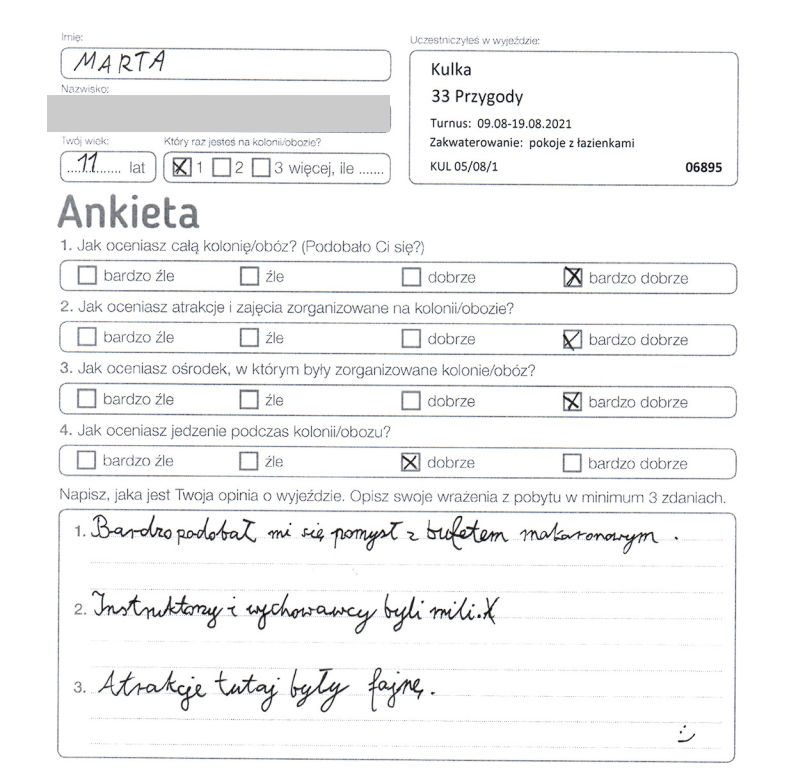 Imię:
MARTA
Nazwisko:
Twój wiek:
11 lat
Który raz jesteś na kolonii/obozie?
1 2 3 więcej, ile .......
Uczestniczyłeś w wyjeździe:
Kulka
33 Przygody
Turnus: 09.08-19.08.2021
Zakwaterowanie: pokoje z łazienkami
KUL 05/08/1 06895
Ankieta
1. Jak oceniasz całą kolonię/obóz? (Podobało Ci się?)
bardzo źle źle dobrze bardzo dobrze
2. Jak oceniasz atrakcje i zajęcia zorganizowane na kolonii/obozie?
bardzo źle źle dobrze bardzo dobrze
3. Jak oceniasz ośrodek, w którym były zorganizowane kolonie/obóz?
bardzo źle źle dobrze bardzo dobrze
4. Jak oceniasz jedzenie podczas kolonii/obozu?
bardzo źle źle dobrze bardzo dobrze
Napisz, jaka jest Twoja opinia o wyjeździe. Opisz swoje wrażenia z pobytu w minimum 3 zdaniach.
1. Bardzo podobał mi się pomysł z bufetem makaronowym.
2. Instruktorzy i wychowawcy byli mili.
3. Atrakcje tutaj były fajne.
:)